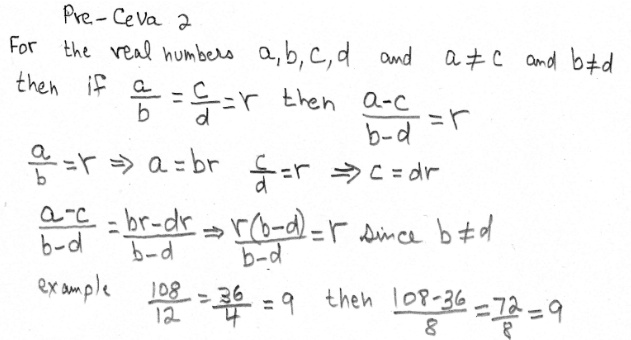 Pre-Ceva 2
For the real numbers a,b,c,d and a≠c and b≠d
then if a/b = c/d = r then (a-c)/(b-d) = r
a/b = r ⇒ a = br c/d = r ⇒ c = dr
(a-c)/(b-d) = (br-dr)/(b-d) ⇒ r(b-d)/(b-d) = r since b≠d
example 108/12 = 36/4 = 9 then (108-36)/8 = 72/8 = 9